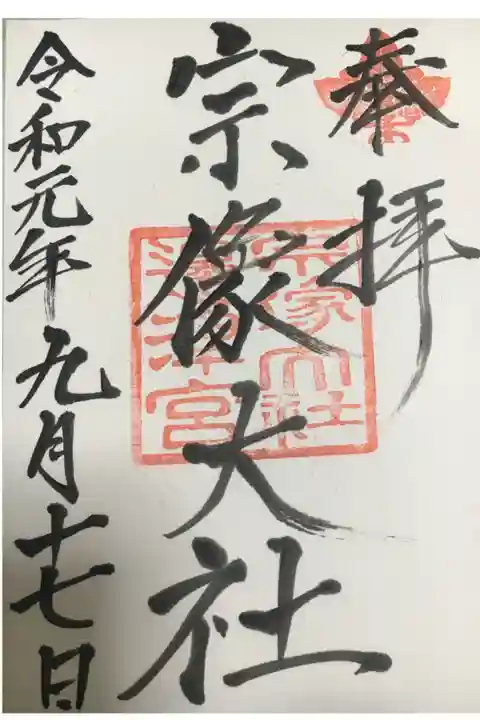 奉拝
宗像大社
令和元年九月十七日
宗像大社
津宮